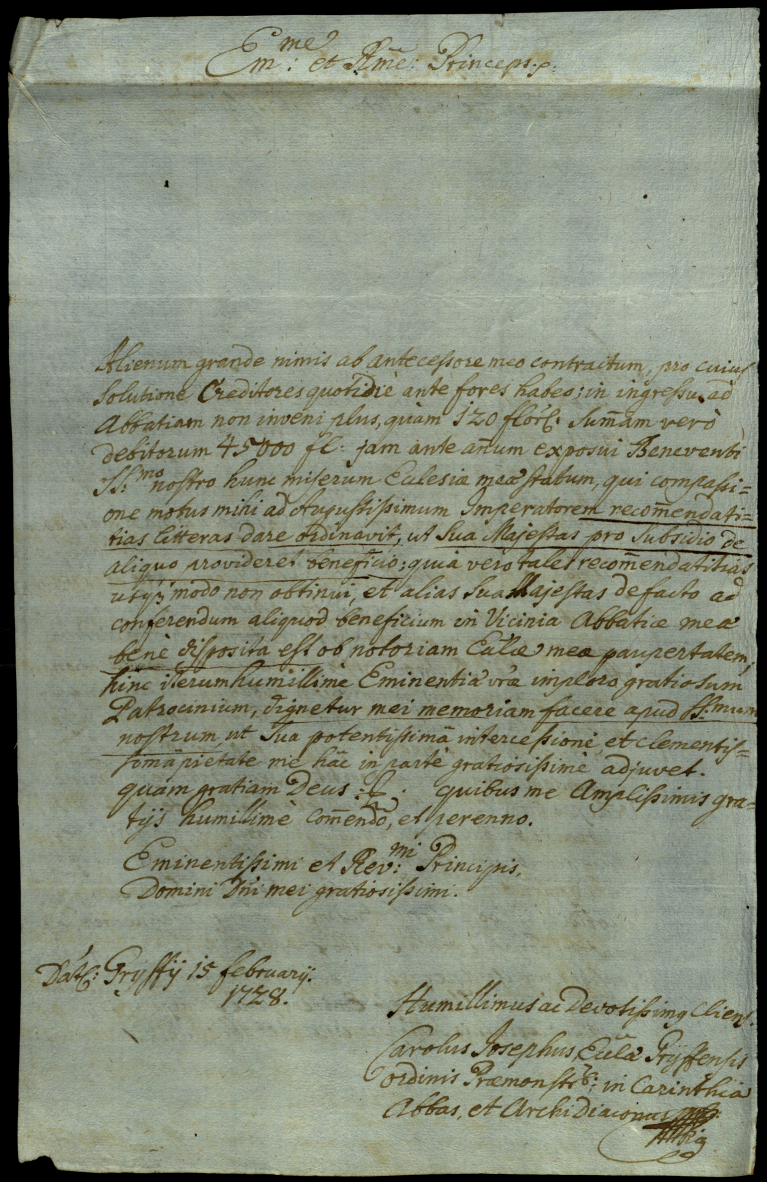 Em:me et Rme: Princeps. p.
Alienum grande nimis ab antecessore meo contractum, pro cuius
solutione Creditores quotidie ante fores habeo; in ingressu ad
Abbatiam non inveni plus, quam 120 flor: Sum̄am verò
debitorum 45000 fl. jam ante an̄um exposui Beneventi
SS:mo nostro hunc miserum Ecclesiæ meæ statum, qui compassi=
one motus mihi ad Augustissimum Imperatorem recom̄endati=
tias litteras dare ordinavit, ut Sua Majestas pro subsidio de
aliquo provideret beneficio; quia vero tales recom̄endatitias
usq3 modo non obtinui, et alias Sua Majestas de facto ad
conferendum aliquod beneficium in Vicinia Abbatiæ meæ
benè disposita est ob notoriam Eccl̄æ meæ paupertatem,
hinc iterum humillimè Eminentiæ vr̄æ imploro gratiosum
Patrocinium, dignetur mei memoriam facere apud SS:mum
nostrum ut Sua potentissimâ intercessione, et clementis=
simâ pietate me hâc in parte gratiosissimè adjuvet.
quam gratiam Deus : quibus me Amplissimis gra=
tijs humillimè com̄endo, et perenno.
Eminentissimi et Rev:mi Principis,
Domini Dn̄i mei gratiosissimi.
Dat: Gryffij 15 february.
1728.
Humillimus ac Devotissimq Cliens.
Carolus Josephus, Eccl̄æ Gryffensis
ordinis Præmonstr: in Carinthia
Abbas, et ArchiDiaconus mpp.